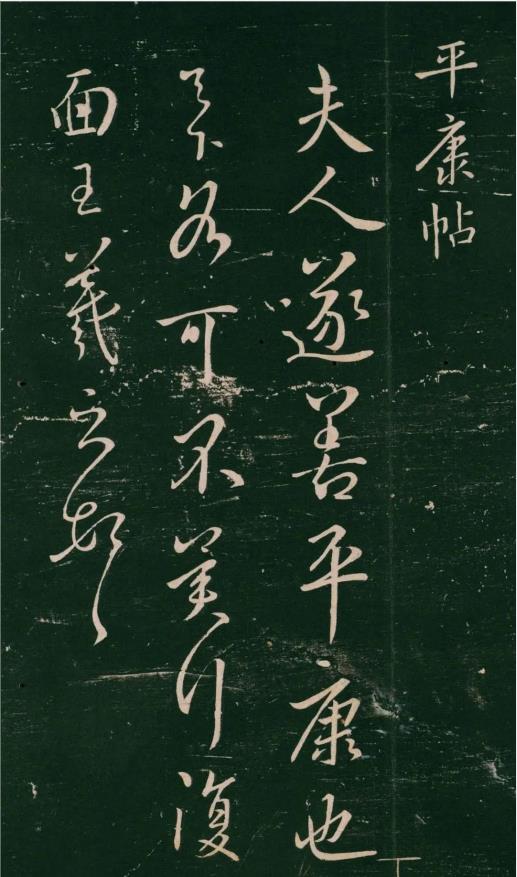 平康帖
夫人遂善平康也
足下各可不冀行復
面王羲之頓首